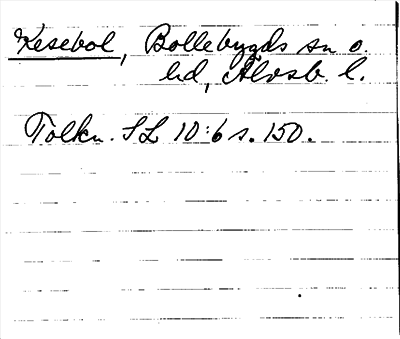 Kesebol, Bollebygds sn o.
hd, Älvsb. l.
Tolkn. SL 10:6 s. 150.